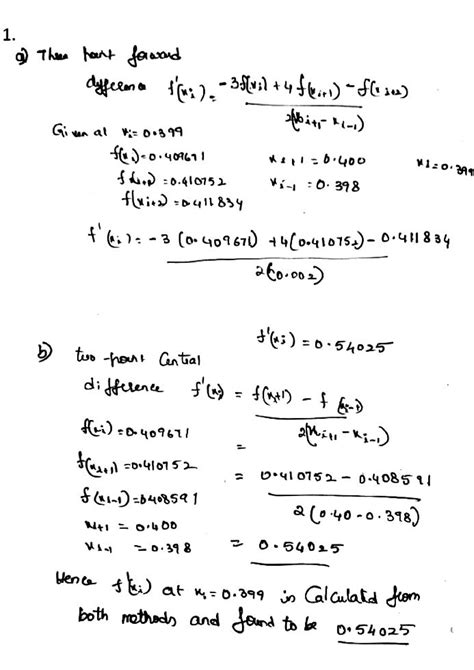 1.
a) Three point forward
difference f'(xi) = -3f(xi) + 4 f(xi+1) - f(xi+2)
2(xi+1 - xi-1)
Given at xi = 0.399
f(xi) = 0.409671 xi+1 = 0.400 xi = 0.399
f(xi+1) = 0.410752 xi-1 = 0.398
f(xi+2) = 0.411834
f'(xi) = -3 (0.409671) + 4(0.410752) - 0.411834
2(0.002)
f'(xi) = 0.54025
b) two-point Central
difference f'(xi) = f(xi+1) - f(xi-1)
2(xi+1 - xi-1)
f(xi) = 0.409671 =
f(xi+1) = 0.410752 = 0.410752 - 0.408591
f(xi-1) = 0.408591 2(0.40 - 0.398)
xi+1 = 0.400
xi-1 = 0.398 = 0.54025
Hence f'(xi) at xi = 0.399 is Calculated from
both methods and found to be 0.54025